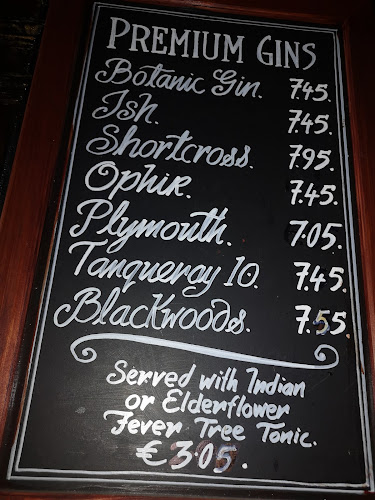 PREMIUM GINS
Botanic Gin. 7.45.
Ish. 7.45.
Shortcross. 7.95.
Ophir. 7.45.
Plymouth. 7.05.
Tanqueray 10. 7.45.
Blackwoods. 7.55
Served with Indian
or Elderflower
Fever Tree Tonic.
€ 3.05.